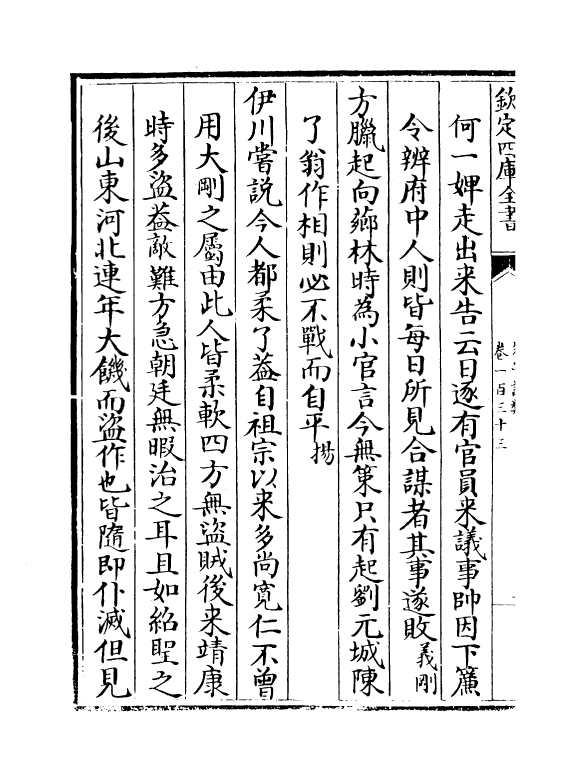 欽定四庫全書
卷一百三十三
何一婢走出来告云日逐有官員来議事帥因下簾
令辨府中人則皆每日所見合謀者其事遂敗義剛
方臘起向薌林時為小官言今無策只有起劉元城陳
了翁作相則必不戰而自平揚
伊川嘗説今人都柔了葢自祖宗以来多尚寛仁不曾
用大剛之屬由此人皆柔軟四方無盜賊後来靖康
時多盜葢敵難方急朝廷無暇治之耳且如紹聖之
後山東河北連年大饑而盜作也皆隨即仆滅但見